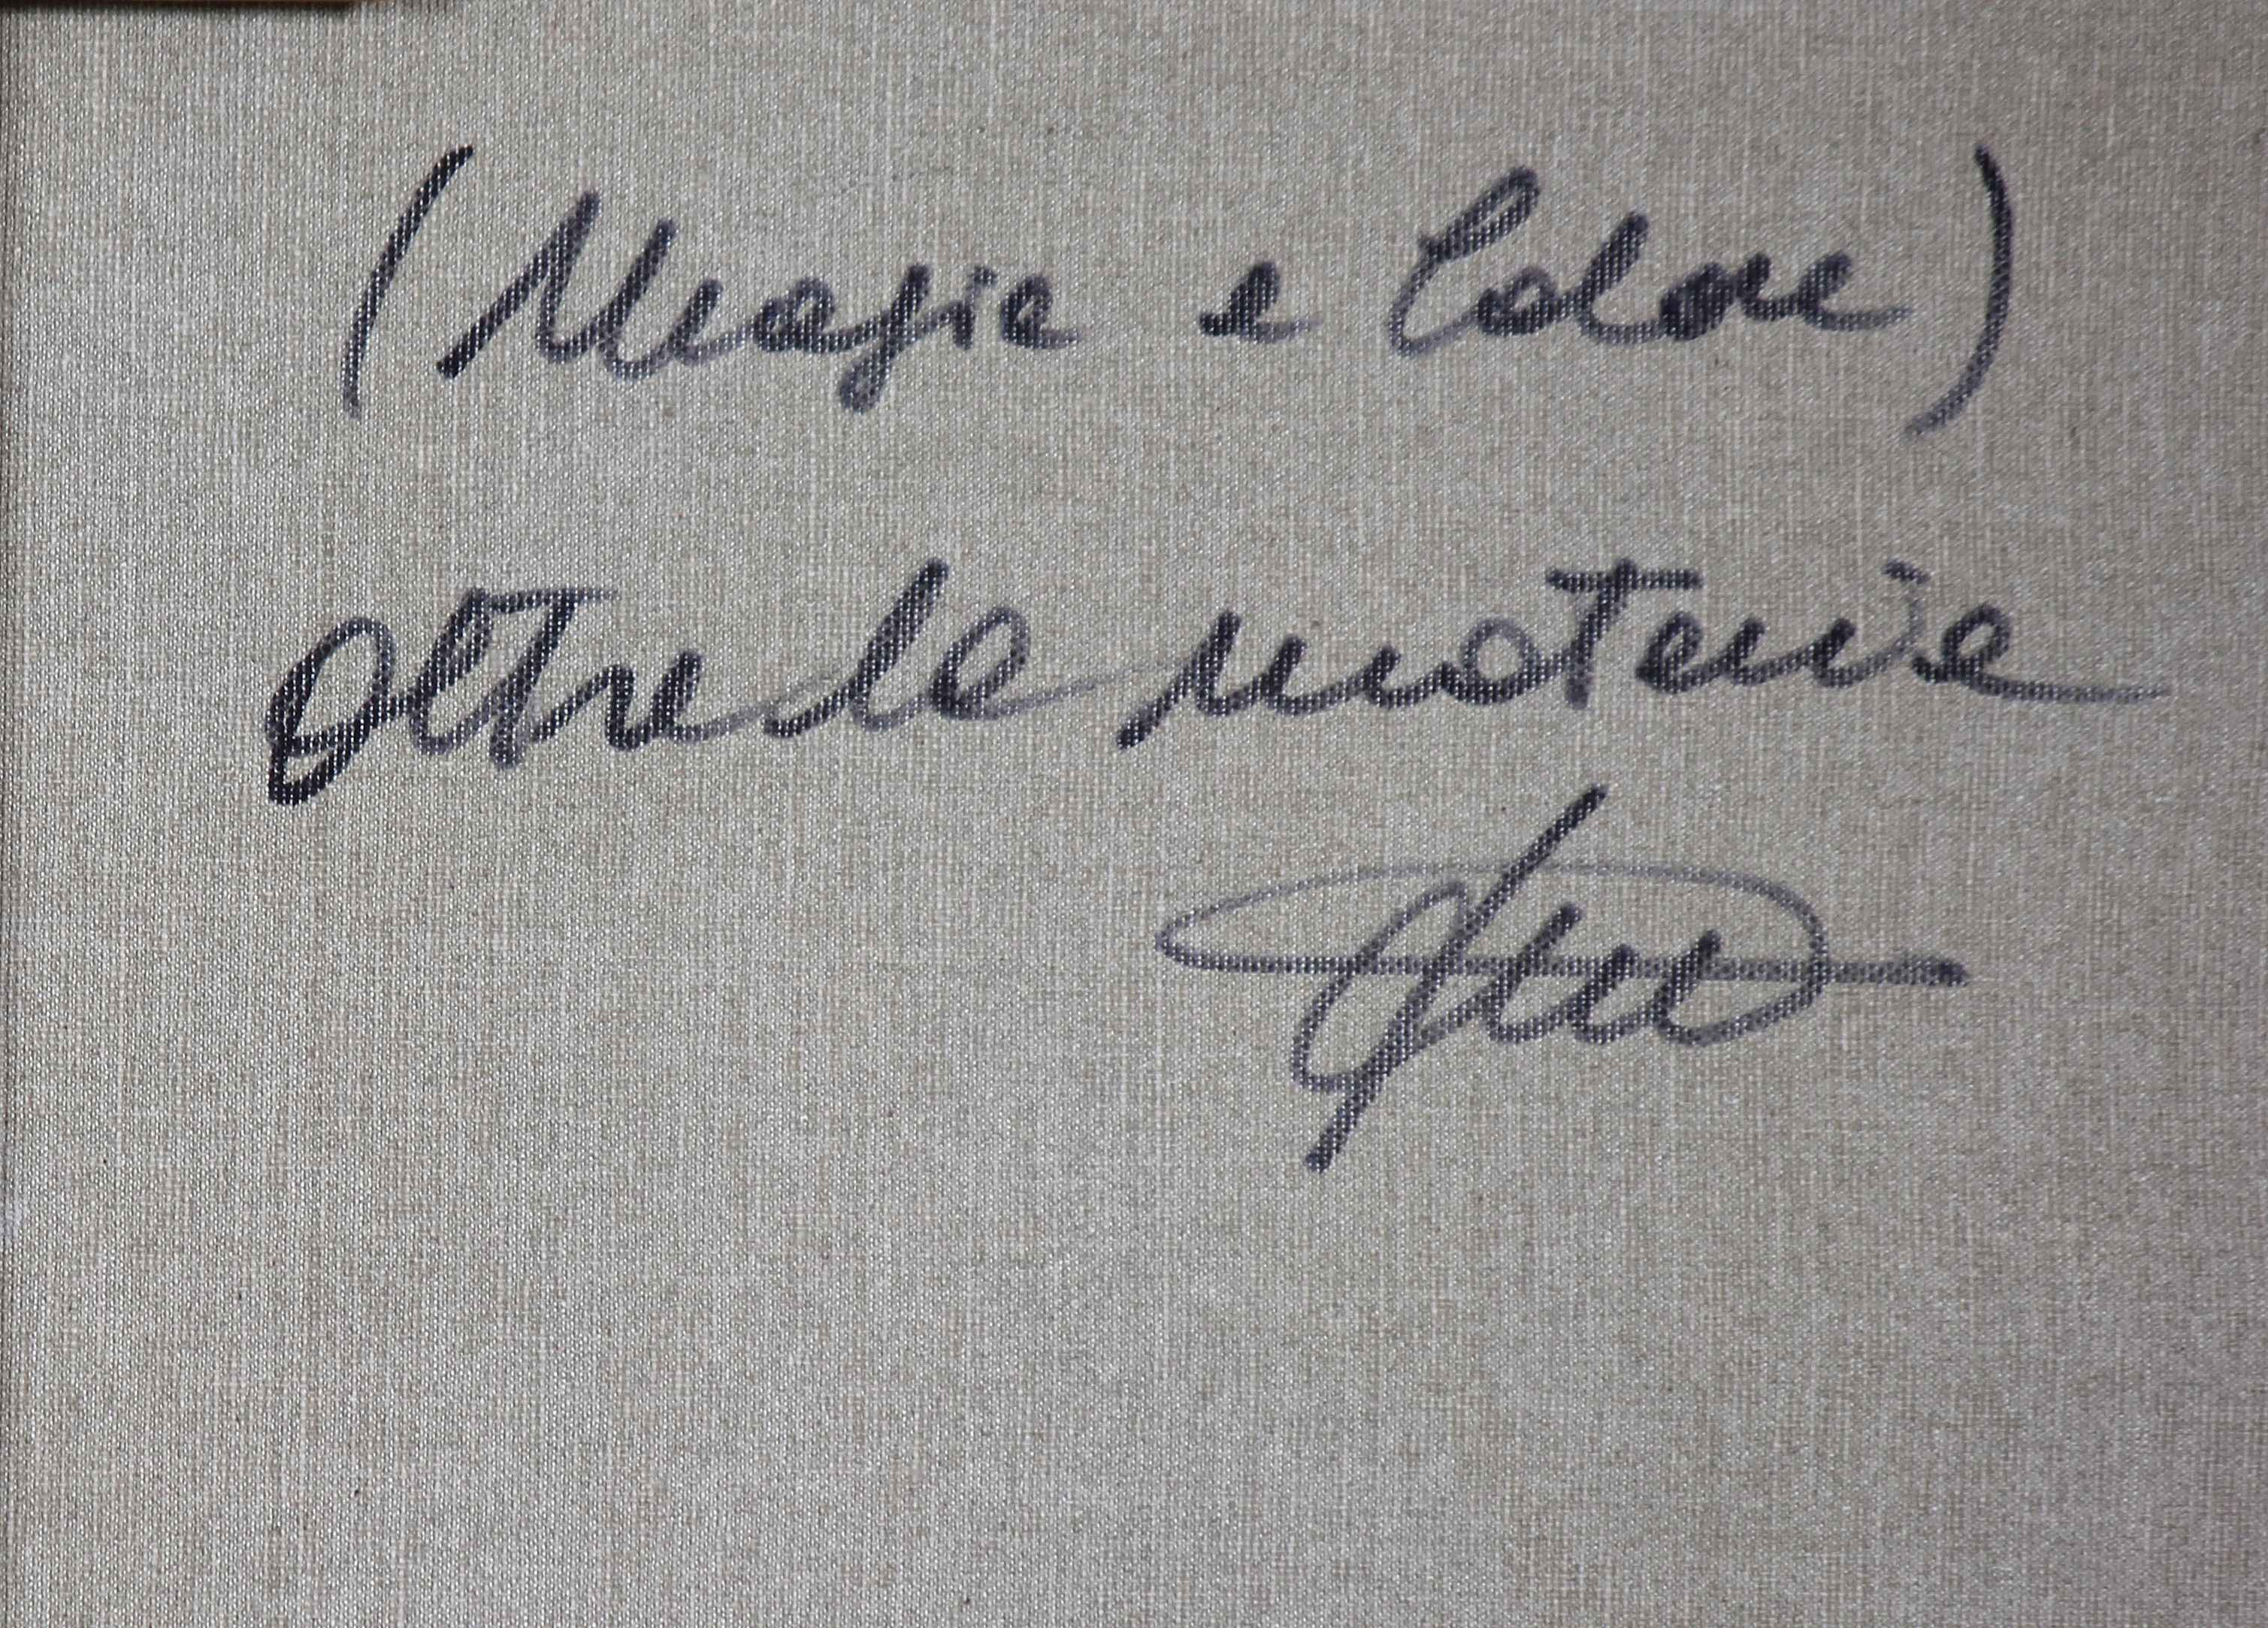 (Magia e Colore)
Oltre la materia